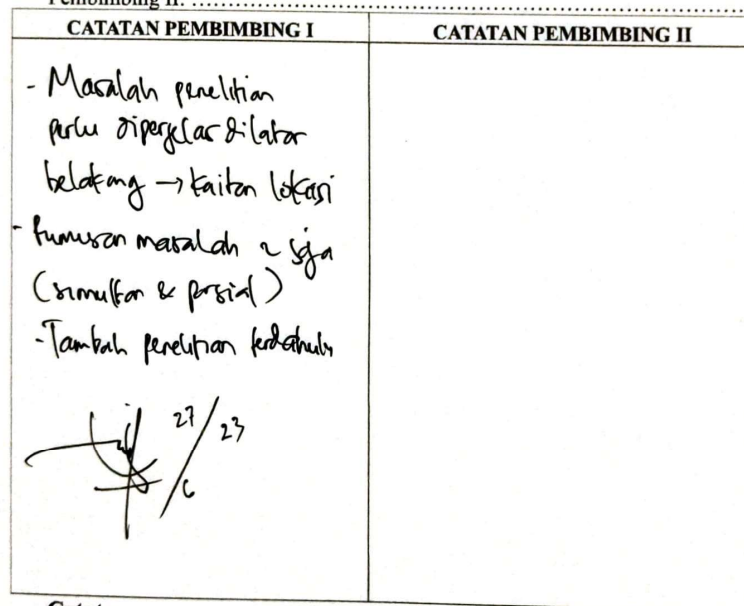 Pembimbing II: ........................................
CATATAN PEMBIMBING I
- Masalah penelitian
perlu diperjelas dilatar
belakang → kaitan lokasi
- Rumusan masalah 2 saja
(simultan & parsial)
- Tambah penelitian terdahulu
27/6 23
CATATAN PEMBIMBING II